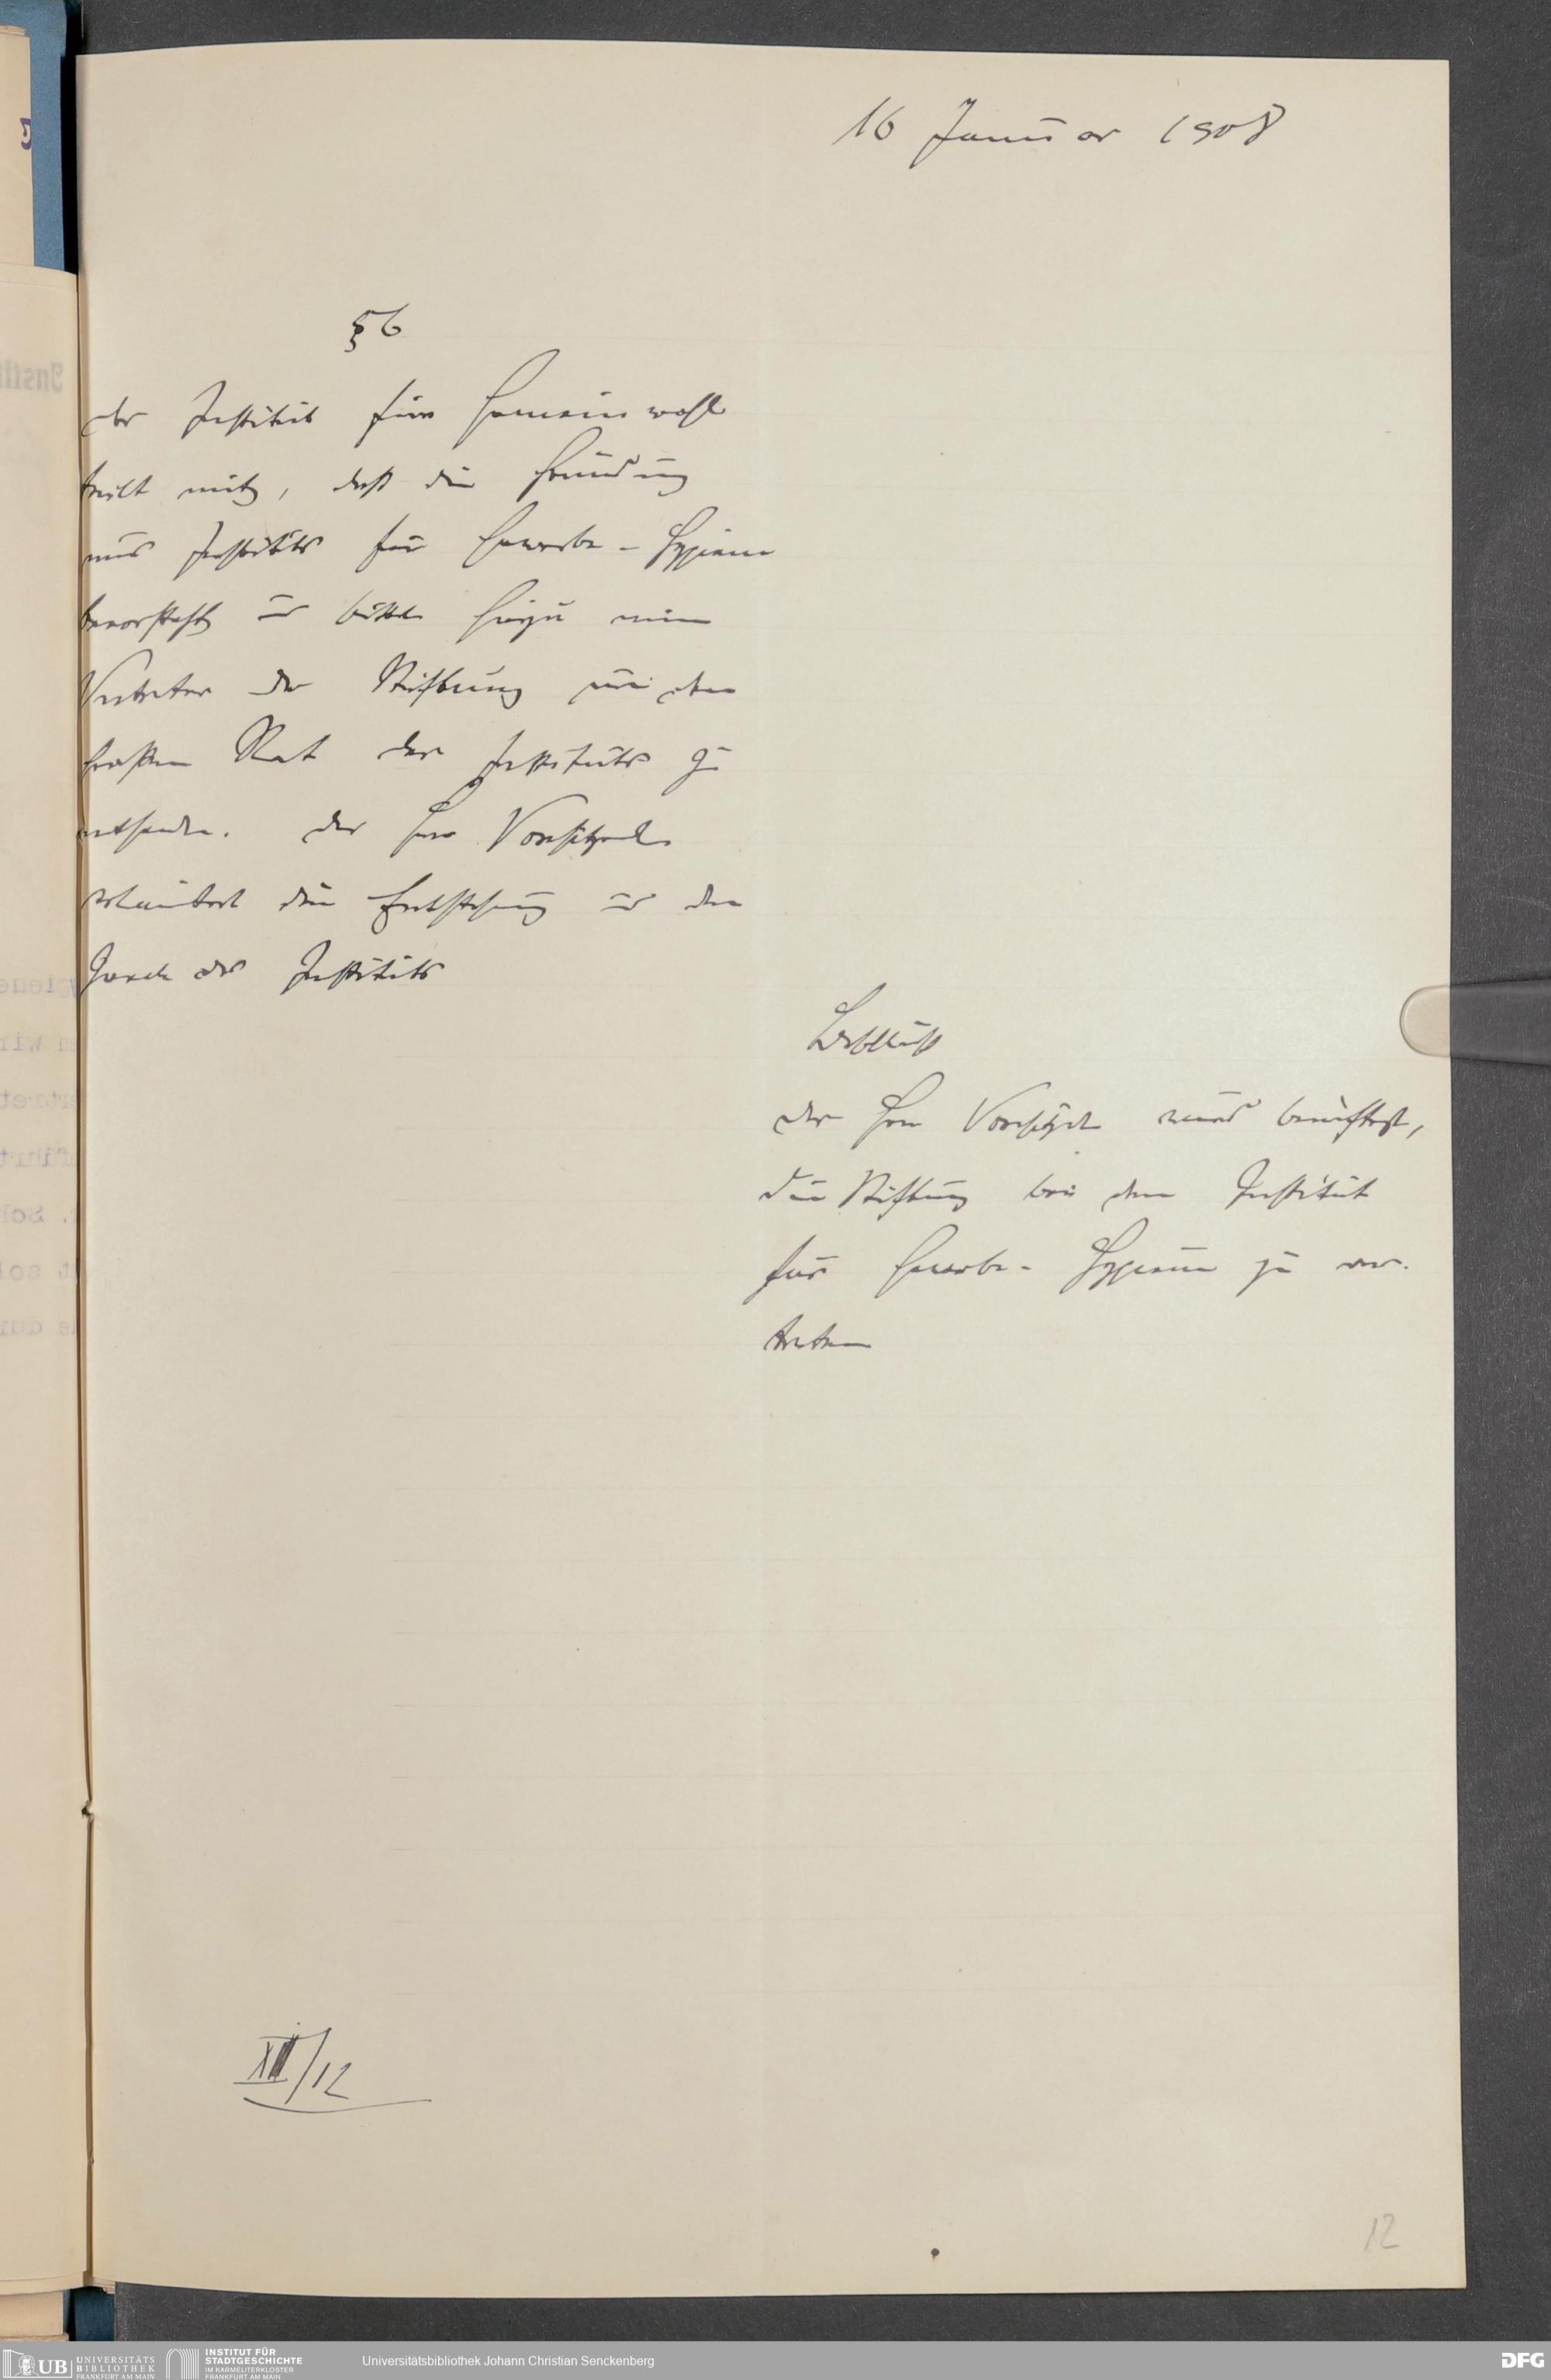 16 Januar 1908
§ 6
das Institut für Gemeinwohl
teilt mit, daß die Gründung
eines Instituts für Gewerbe-Hygiene
bevorsteht und bittet hierzu einen
Vertreter der Stiftung in den
großen Rat des Instituts zu
entsenden. der Herr Vorsitzende
erläutert die Entstehung und den
Zweck des Instituts
Beschluß
der Herr Vorsitzende wird beauftragt,
die Stiftung bei dem Institut
für Gewerbe-Hygiene zu ver-
treten
XII/12
12
UB UNIVERSITÄTS
BIBLIOTHEK
FRANKFURT AM MAIN
INSTITUT FÜR
STADTGESCHICHTE
IM KARMELITERKLOSTER
FRANKFURT AM MAIN
Universitätsbibliothek Johann Christian Senckenberg
DFG